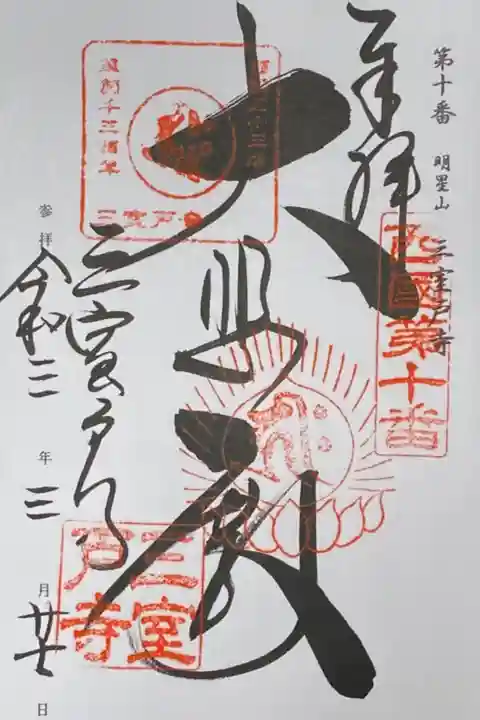 第十番 明星山 三室戸寺
奉拝
西国第十番
大悲殿
三室戸寺
三室戸寺
参拝 令和三年三月廿七日